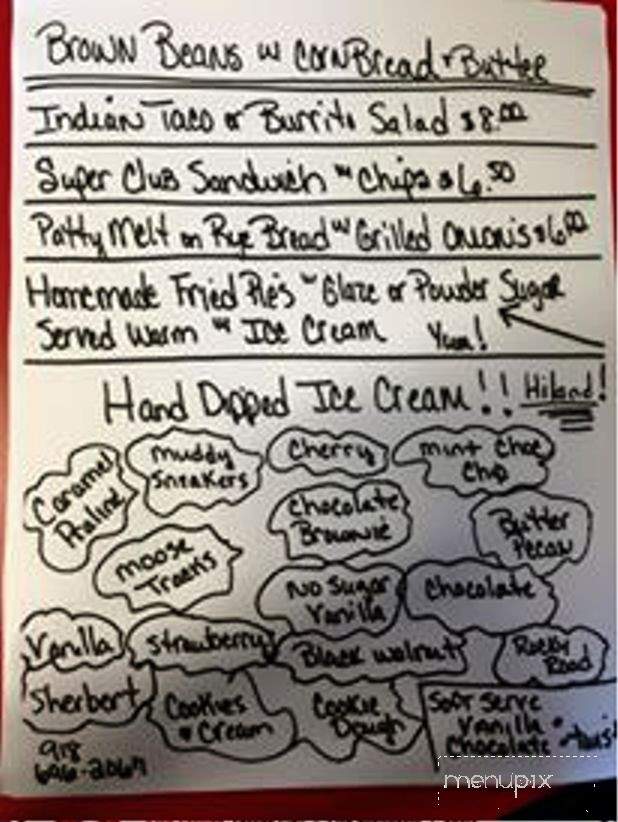 Brown Beans w CornBread & Butter
Indian Taco or Burrito Salad $8.00
Super Club Sandwich w Chips $6.50
Patty Melt on Rye Bread w Grilled Onions $6.00
Homemade Fried Pie's w Glaze or Powder Sugar
Served Warm w Ice Cream Yum!
Hand Dipped Ice Cream!! Hiland!
Caramel
Praline
Muddy
Sneakers
Cherry
Mint Choc
Chip
Chocolate
Brownie
Butter
Pecan
Moose
Tracks
No Sugar
Vanilla
Chocolate
Vanilla
Strawberry
Black Walnut
Rocky
Road
Sherbert
Cookies
& Cream
Cookie
Dough
Soft Serve
Vanilla
Chocolate
918
menupix